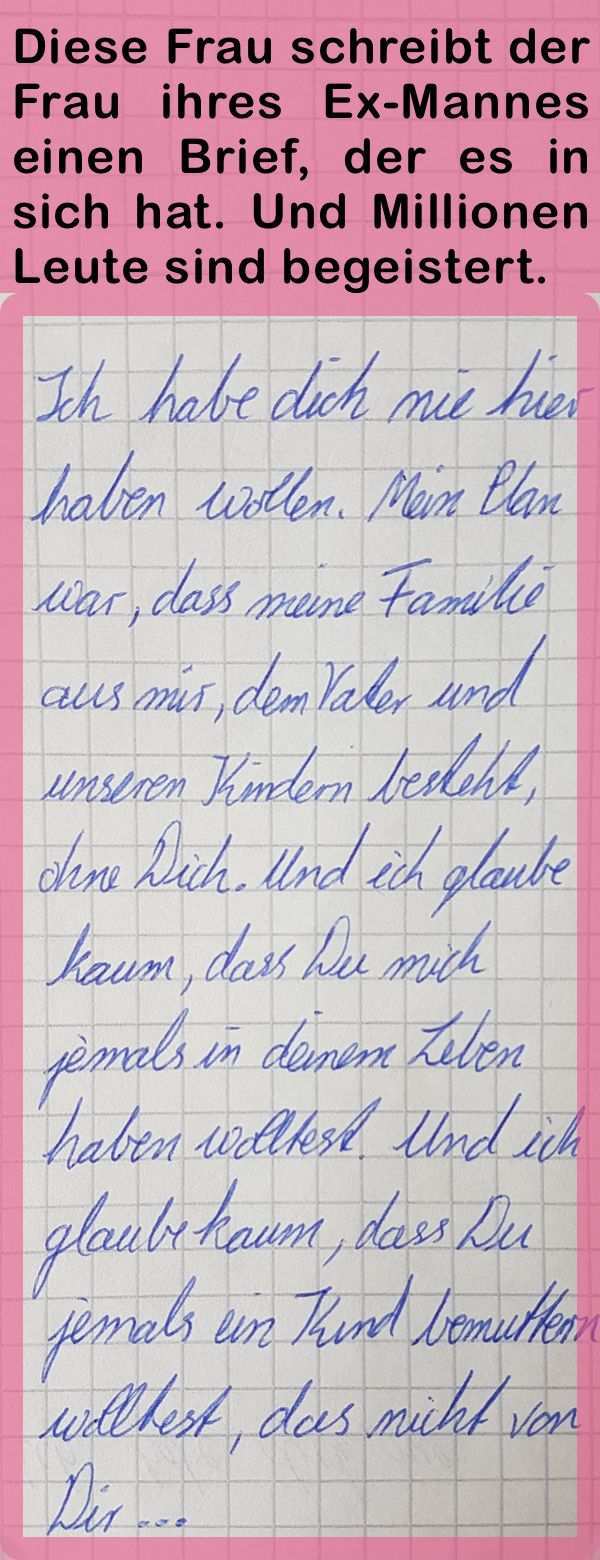 Diese Frau schreibt der
Frau ihres Ex-Mannes
einen Brief, der es in
sich hat. Und Millionen
Leute sind begeistert.
Ich habe dich nie hier
haben wollen. Mein Plan
war, dass meine Familie
aus mir, dem Vater und
unseren Kindern besteht,
ohne Dich. Und ich glaube
kaum, dass Du mich
jemals in deinem Leben
haben wolltest. Und ich
glaube kaum, dass Du
jemals ein Kind bemuttern
wolltest, das nicht von
Dir...